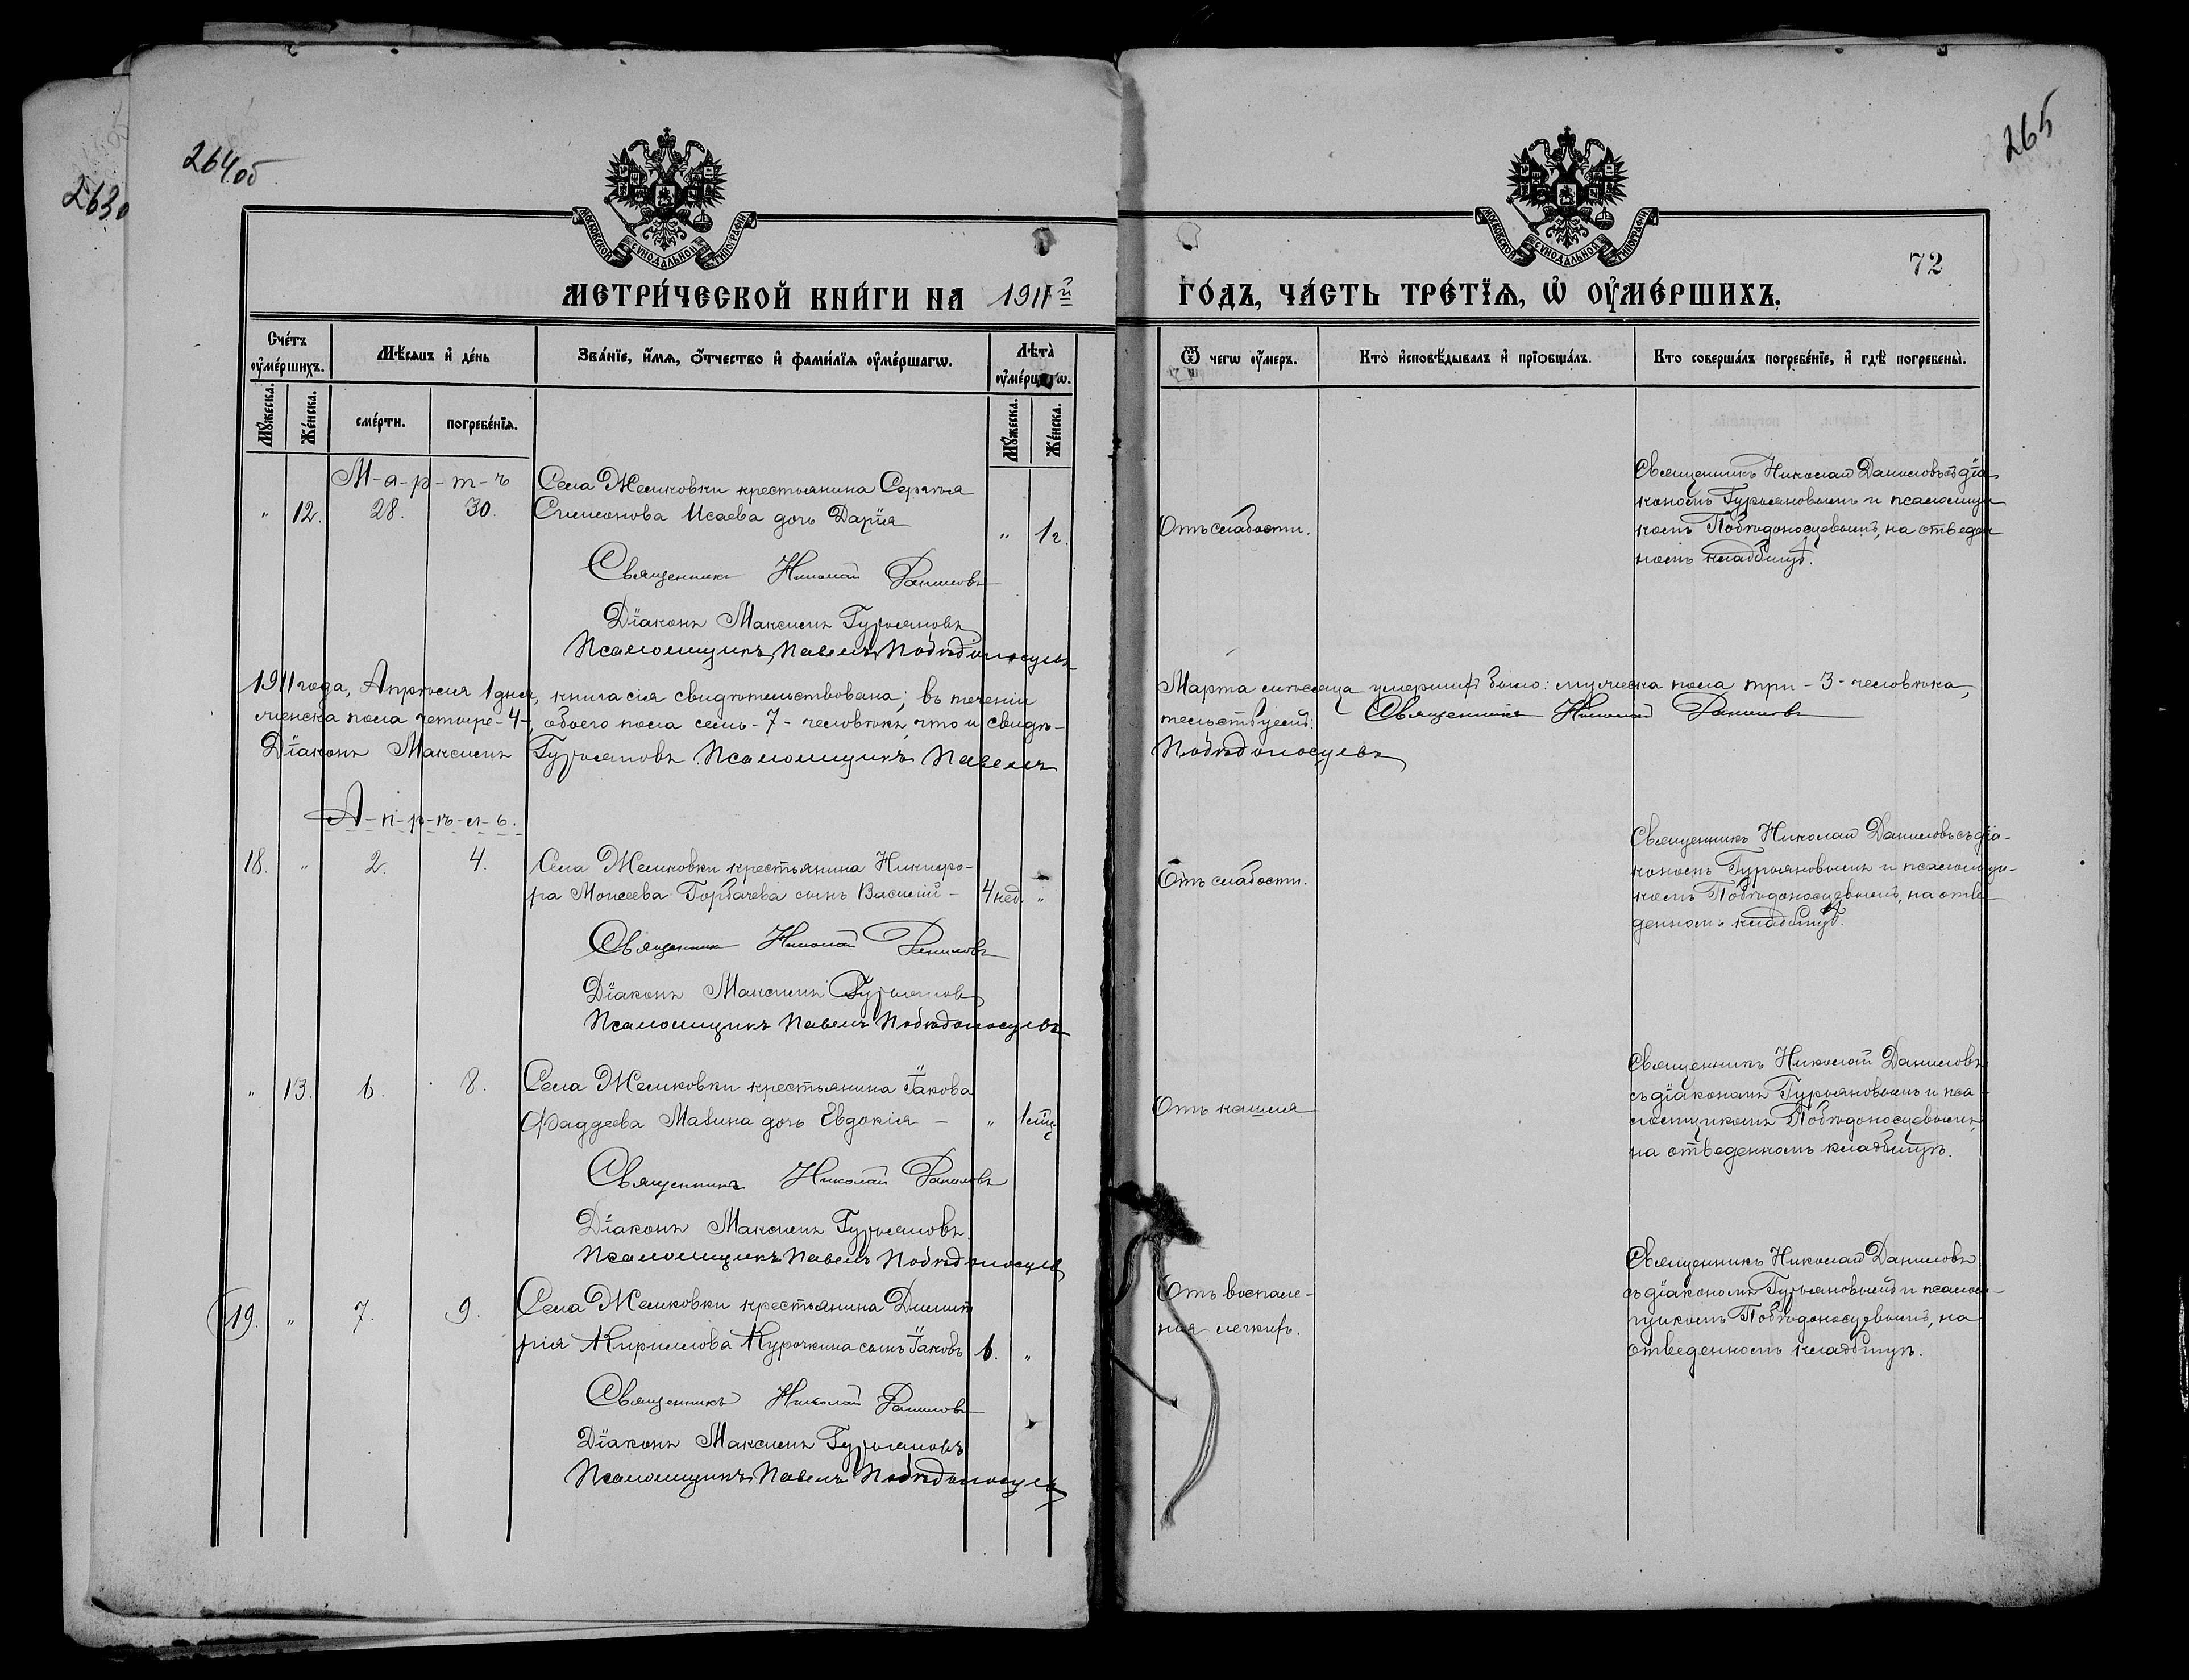 264 об
263 о
265
72
МОСКОВСКОЙ СУНОДАЛЬНОЙ ТИПОГРАФІИ
МОСКОВСКОЙ СУНОДАЛЬНОЙ ТИПОГРАФІИ
МЕТРИ́ЧЕСКОЙ КНИ́ГИ НА 1911 й
ГО́ДЪ, ЧА́СТЬ ТРЕ́ТЇѦ, Ѡ҆ ОУ҆МЕ́РШИХЪ.
Сче́тъ оу҆ме́ршихъ.
Мѣ́сѧцъ и҆ де́нь
Зва́нїе, и҆́мѧ, ѻ҆́тчество и҆ фами́лїѧ оу҆ме́ршагѡ.
Лѣ́та оу҆ме́ршагѡ.
Ѿ чегѡ̀ оу҆́меръ.
Кто̀ и҆сповѣ́дывалъ и҆ прїѡбща́лъ.
Кто̀ соверша́лъ погребе́нїе, и҆ гдѣ̀ погребены̀.
Мꙋ́жеска.
Же́нска.
сме́рти.
погребе́нїѧ.
Мꙋ́жеска.
Же́нска.
М-а-р-т-ъ
" 12. 28. 30.
Села Жемковки крестьянина Сергѣя
Симеонова Исаева дочь Дарїя " 1 г.
Священникъ Николай Даниловъ
Дїаконъ Максимъ Гурьяновъ
Псаломщикъ Павелъ Побѣдоносцевъ
Отъ слабости.
Священникъ Николай Даниловъ съ дїа-
кономъ Гурьяновымъ и псаломщи-
комъ Побѣдоносцевымъ, на отведен-
номъ кладбищѣ.
1911 года, Апрѣля 1 дня, книга сія свидѣтельствована; въ теченіи
Марта мѣсяца умершихъ было: мужеска пола три -3- человѣка,
женска пола четыре -4-, обоего пола семь -7- человѣкъ, что и свидѣ-
тельствуемъ: Священникъ Николай Даниловъ
Дїаконъ Максимъ Гурьяновъ Псаломщикъ Павелъ
Побѣдоносцевъ
А-п-р-ѣ-л-ь.
18. " 2. 4.
Села Жемковки крестьянина Никифо-
ра Моисеева Горбачева сынъ Василій - 4 нед. "
Священникъ Николай Даниловъ
Дїаконъ Максимъ Гурьяновъ
Псаломщикъ Павелъ Побѣдоносцевъ
Отъ слабости.
Священникъ Николай Даниловъ съ дїа-
кономъ Гурьяновымъ и псаломщи-
комъ Побѣдоносцевымъ, на отве-
денномъ кладбищѣ.
" 13. 6. 8.
Села Жемковки крестьянина Їакова
Фаддеева Мавина дочь Евдокія - " 1 мѣц
Священникъ Николай Даниловъ
Дїаконъ Максимъ Гурьяновъ
Псаломщикъ Павелъ Побѣдоносцевъ
Отъ кашля
Священникъ Николай Даниловъ
съ дїакономъ Гурьяновымъ и пса-
ломщикомъ Побѣдоносцевымъ,
на отведенномъ кладбищѣ.
19. " 7. 9.
Села Жемковки крестьянина Димит
рія Кириллова Курочкина сынъ Їаковъ 6. "
Священникъ Николай Даниловъ
Дїаконъ Максимъ Гурьяновъ
Псаломщикъ Павелъ Побѣдоносцевъ
Отъ воспале-
нія легкихъ.
Священникъ Николай Даниловъ
съ дїакономъ Гурьяновымъ и псалом-
щикомъ Побѣдоносцевымъ, на
отведенномъ кладбищѣ.